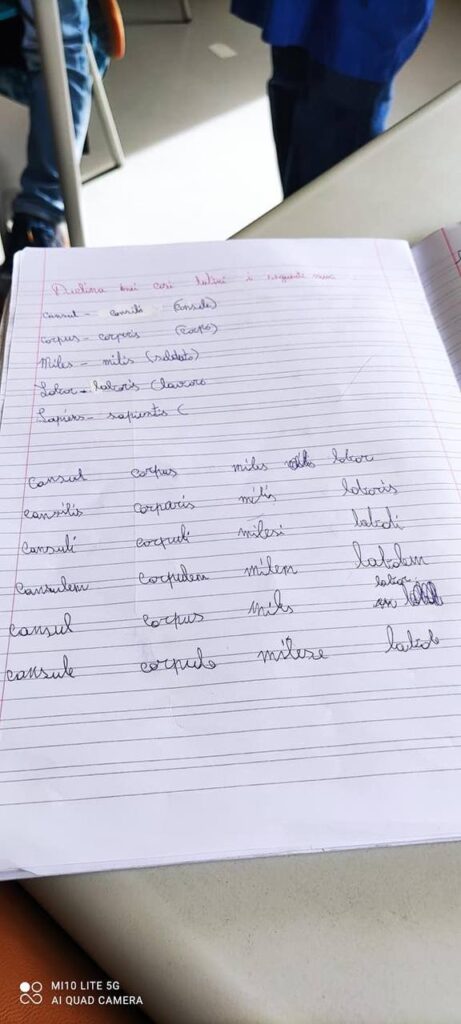 Declina nei casi latini i seguenti nomi
consul - consilis (console)
corpus - corporis (corpo)
Miles - milis (soldato)
Labor - laboris (lavoro
Sapiens - sapientis (
consul corpus miles labor
consilis corparis milis laboris
consuli corpudi milesi
consulem corpudem milem labdem
consul corpus miles labor
consule corpude milese
MI10 LITE 5G
AI QUAD CAMERA